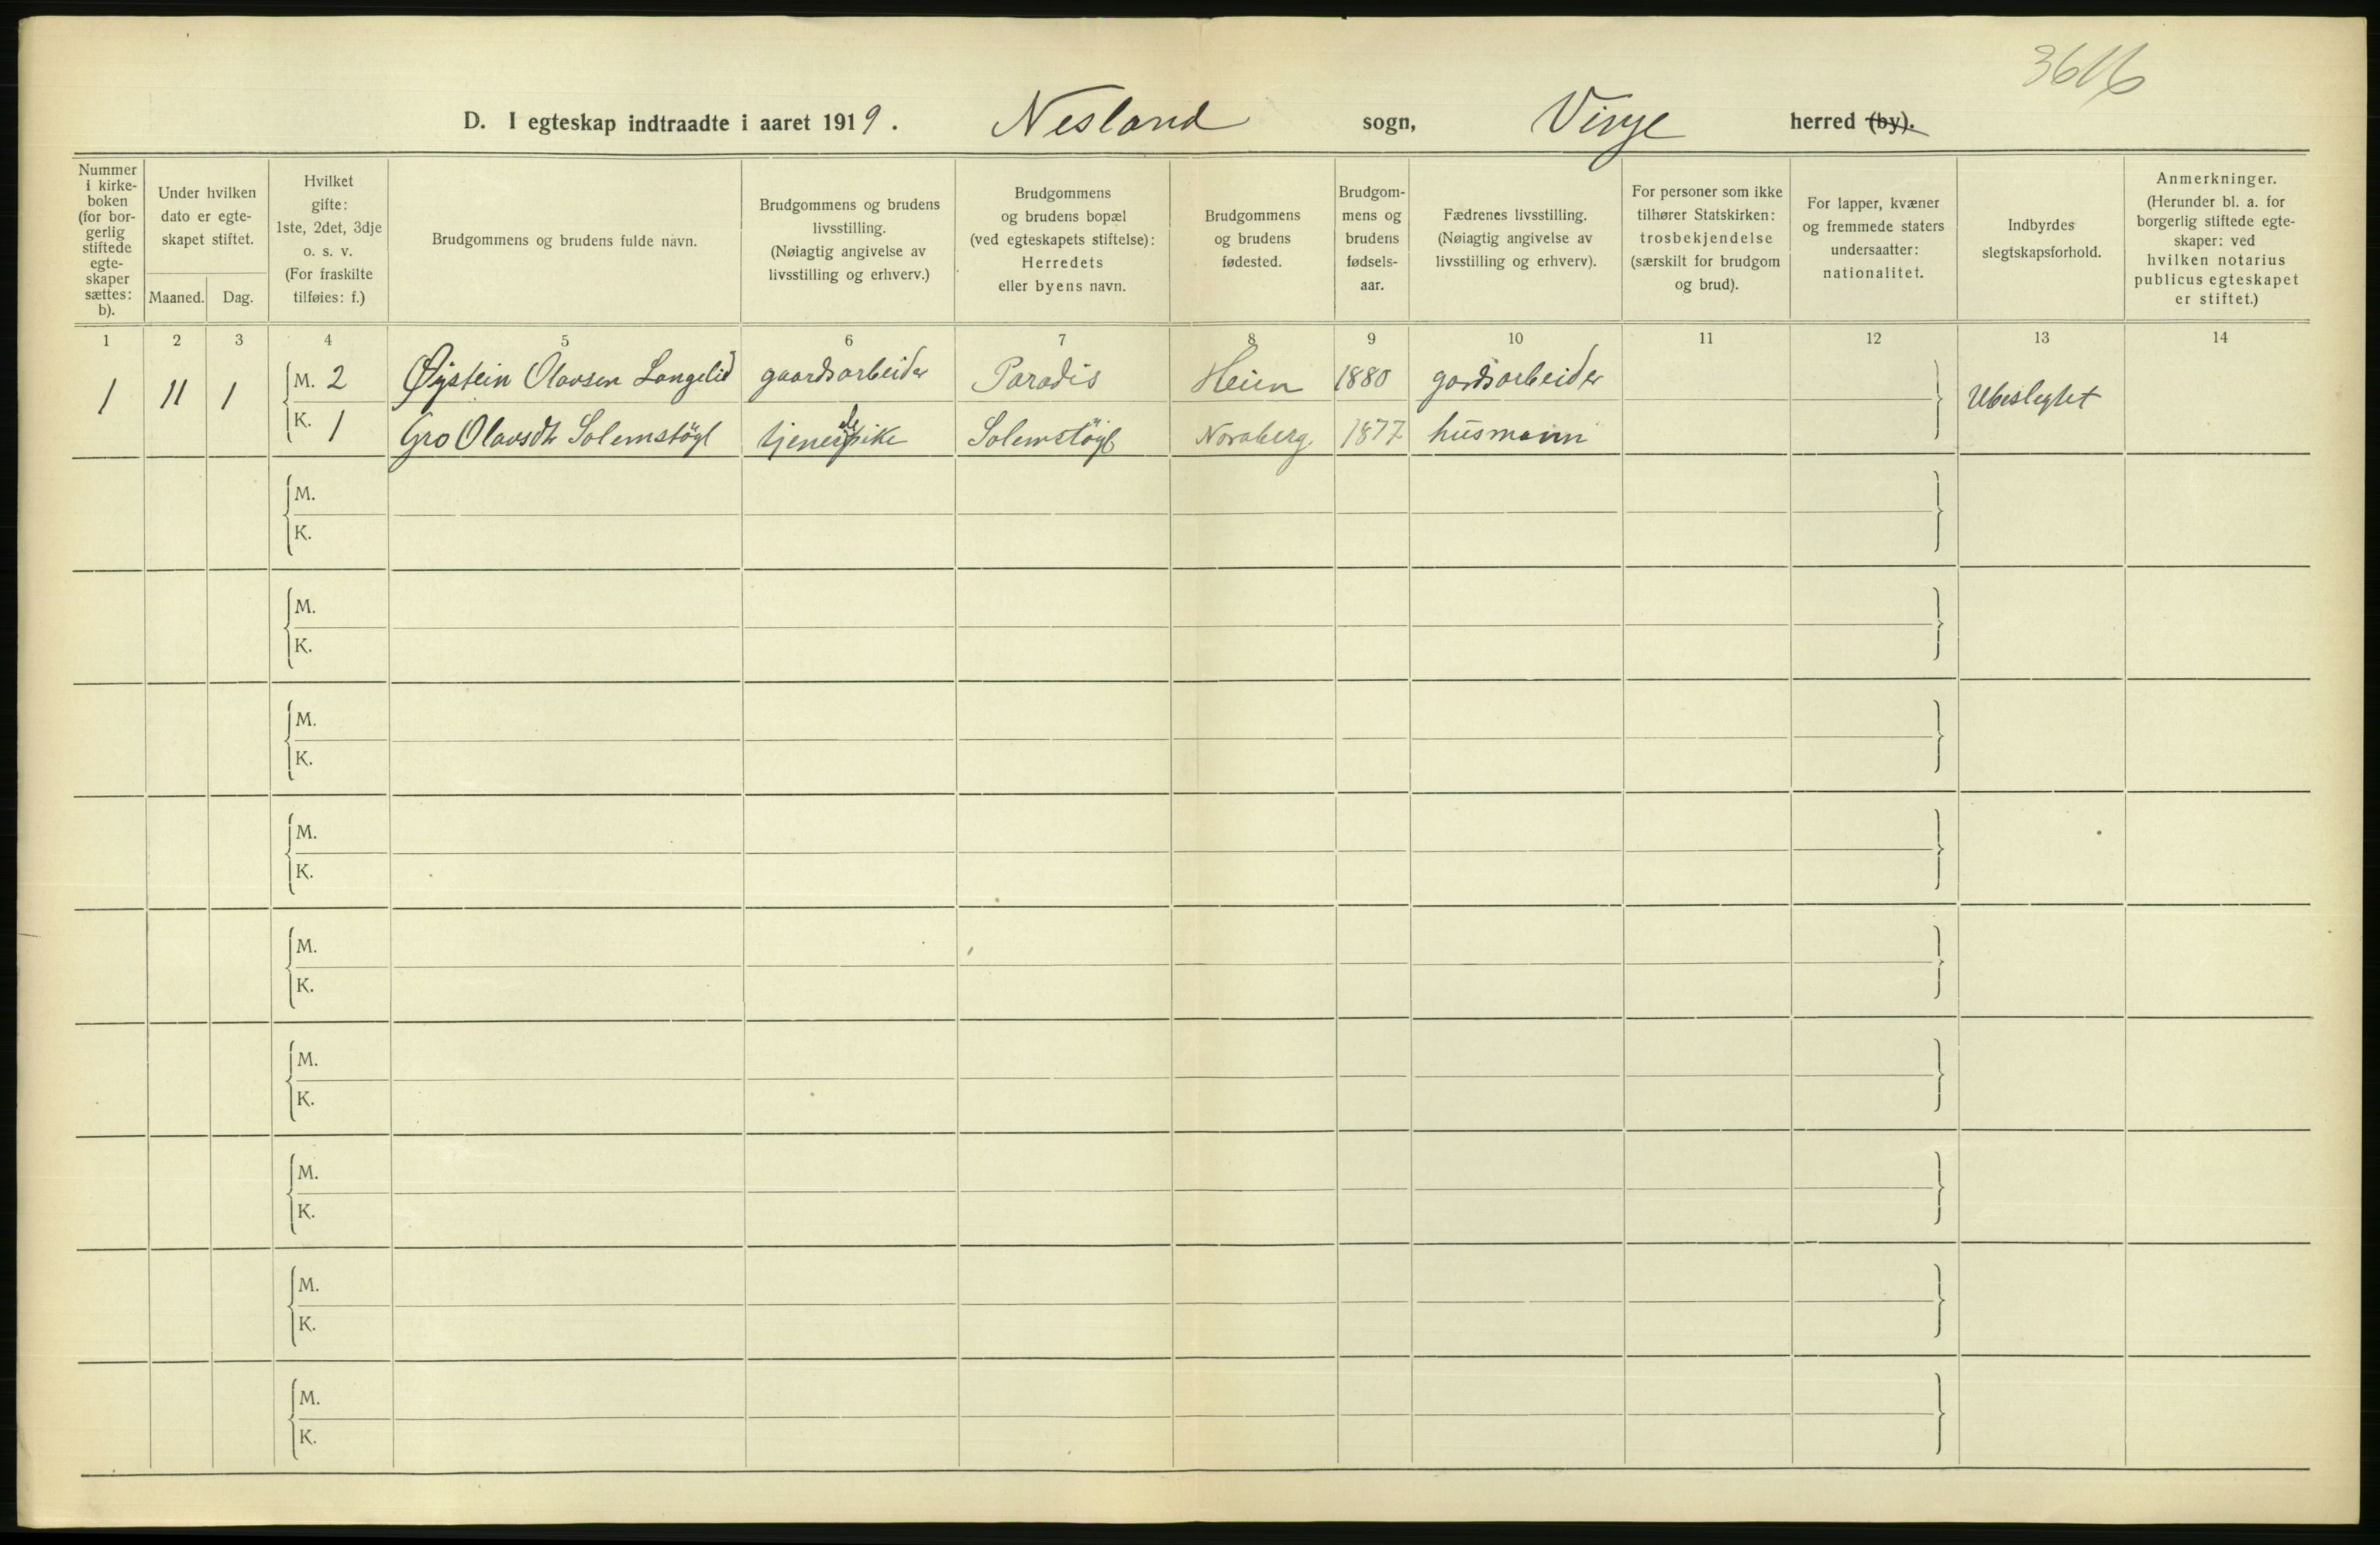 3616
D. I egteskap indtraadte i aaret 1919. Nesland sogn, Vinje herred (by).
Nummer
i kirke-
boken
(for bor-
gerlig
stiftede
egte-
skaper
sættes:
b).
Under hvilken
dato er egte-
skapet stiftet.
Maaned. Dag.
Hvilket
gifte:
1ste, 2det, 3dje
o. s. v.
(For fraskilte
tilføies: f.)
Brudgommens og brudens fulde navn.
Brudgommens og brudens
livsstilling.
(Nøiagtig angivelse av
livsstilling og erhverv.)
Brudgommens
og brudens bopæl
(ved egteskapets stiftelse):
Herredets
eller byens navn.
Brudgommens
og brudens
fødested.
Brudgom-
mens og
brudens
fødsels-
aar.
Fædrenes livsstilling.
(Nøiagtig angivelse av
livsstilling og erhverv).
For personer som ikke
tilhører Statskirken:
trosbekjendelse
(særskilt for brudgom
og brud).
For lapper, kvæner
og fremmede staters
undersaatter:
nationalitet.
Indbyrdes
slegtskapsforhold.
Anmerkninger.
(Herunder bl. a. for
borgerlig stiftede egte-
skaper: ved
hvilken notarius
publicus egteskapet
er stiftet.)
1 2 3 4 5 6 7 8 9 10 11 12 13 14
1 11 1 M. 2 Øystein Olavsen Langelid gaardsarbeider Paradis Heien 1880 gardsarbeider Ubeslegtet
K. 1 Gro Olavsdtr Solemstøyl tjenestepike Solemstöyl Noraberg. 1877 husmann
M.
K.
M.
K.
M.
K.
M.
K.
M.
K.
M.
K.
M.
K.
M.
K.
M.
K.